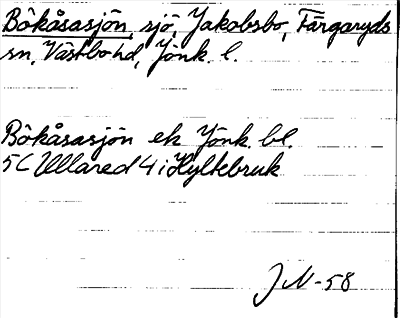 Bökåsasjön, sjö, Jakobsbo, Färgaryds
sn, Västbo hd, Jönk. l.
Bökåsasjön ek Jönk. bl.
5 C Ullared 4 i Hyltebruk
J N-58